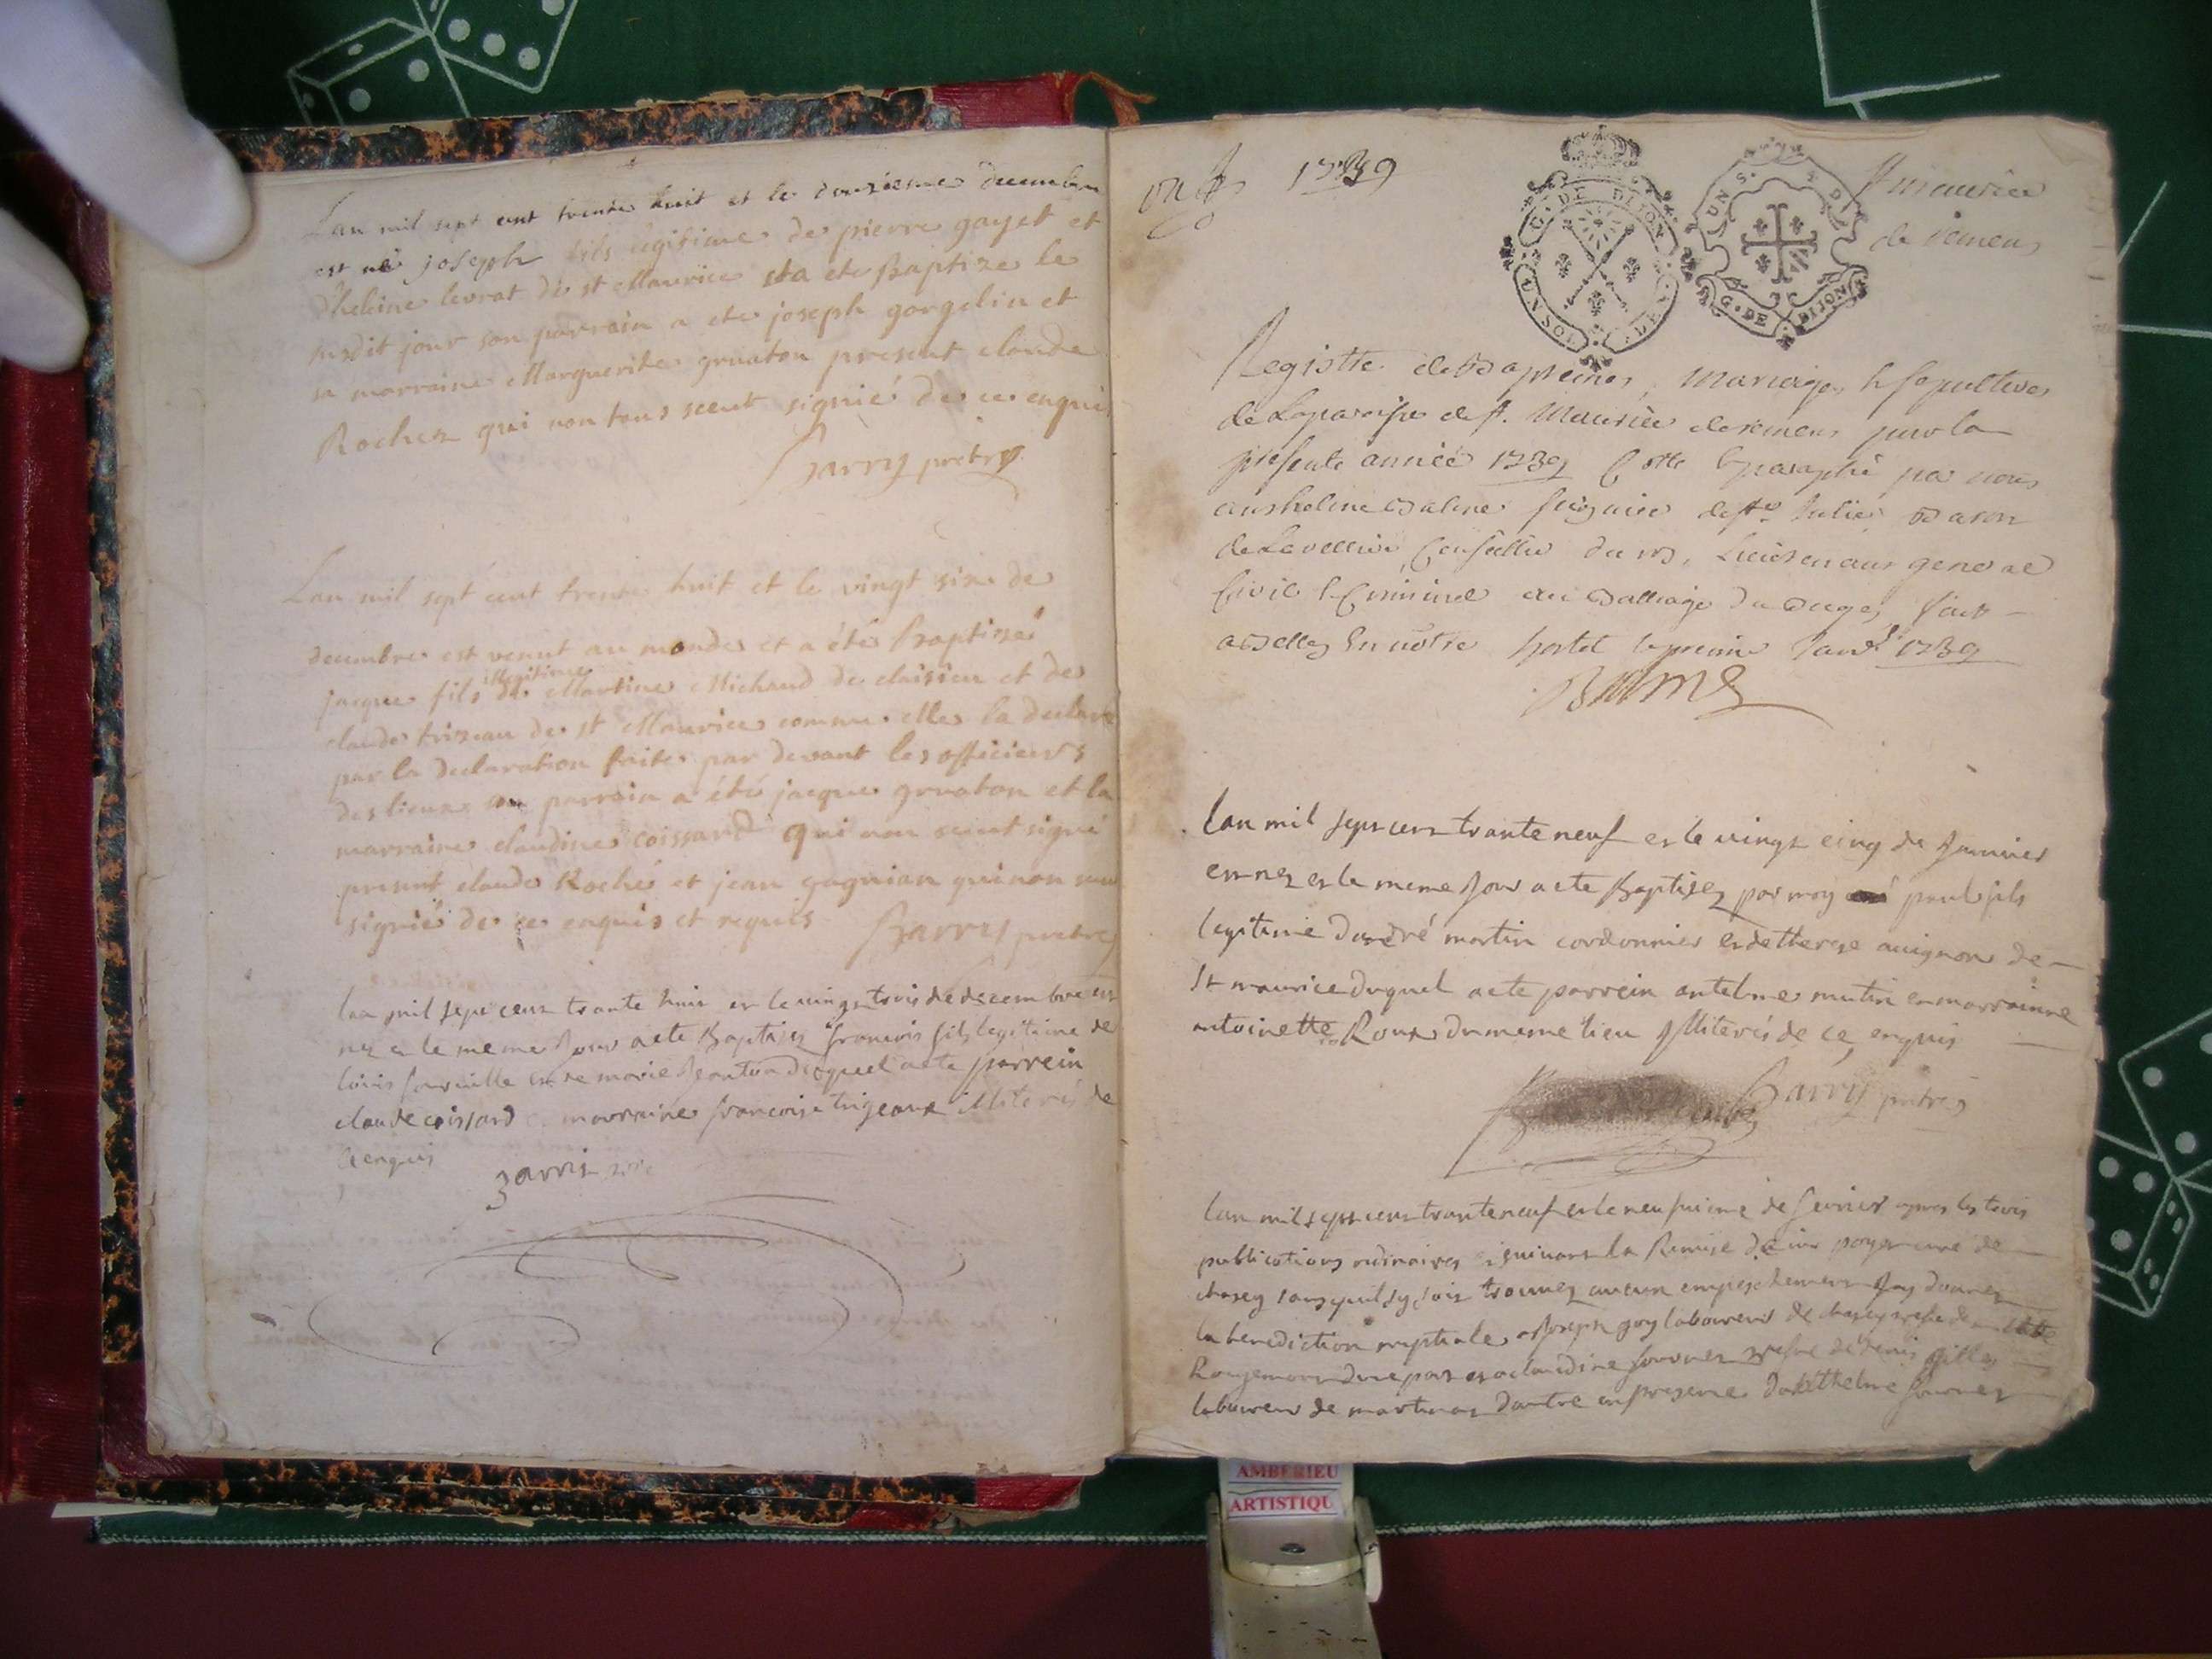 Lan mil sept cent trente huit et le douzieme decembre
est né joseph fils legitime de pierre gayet et
d'helaine levrat de st Maurice et a ete Baptize le
susdit jour son parrain a ete joseph gorgelin et
sa marraine Marguerite gruaton present claude
Rochez qui non tous sceut signié de ce enquis
Barry pretre
Lan mil sept cent trente huit et le vingt six de
decembre est venut au monde et a été Baptizé
jacque fils illegitime de Martine Michaud de et de
claude trizeau de st Maurice comme elle la declaré
par la declaration faite par devant les officiers
des lieux son parrain a été jacque gruaton et la
marraine claudine coissard qui non sceut signé
present claude Roché et jean gagnian qui non sceu
signié de ce enquis et requis Barry pretre
lan mil sept cent trante huit et le vingt trois de decembre est
nez et le meme jour a ete Baptisez francois fils legitime de
louis et de marie duquel a ete parrein
claude coissard et marraine francoise trigeaux illiterés de
ce enquis
Barry
1739
G. DE DIJON
UN SOL
DEN.
UN S.
G. DE DIJON
St maurice
de remens
Registre de Baptemes, Mariages & sepultures
de La paroisse de St. Maurice de remens pour la
presente année 1739 Cotté & paraphé par nous
anthelme Balme seigneur de Ste Julie Baron
de Conseiller du roy, Lieutenant general
Civil & Criminel au Balliage du Bugey, fait
a Belley En notre hostel le premier Janvr 1739
Balme
lan mil sept cent trante neuf et le vingt cinq de Janvier
est nez et le meme jour a ete Baptisez par moy paul fils
legitime dandré martin cordonnier et de therese avignon de
St maurice duquel a ete parrein antelme mutin et marrainne
antoinette Roux du meme lieu illiterés de ce enquis
Barry pretre
lan mil sept cent trante neuf et le neufvieme de fevrier apres les trois
publications ordinaires et suivant la Remise de curé de
chasey sans quil sy soit trouvez aucun empeschement Jay donnez
la benediction nuptiale a Joseph goy laboureur de chasey
Rougemont dune part et a claudine fournez vefve de denis gilles
laboureur de martinaz dautre en presence danthelme fournez
AMBERIEU
ARTISTIQU